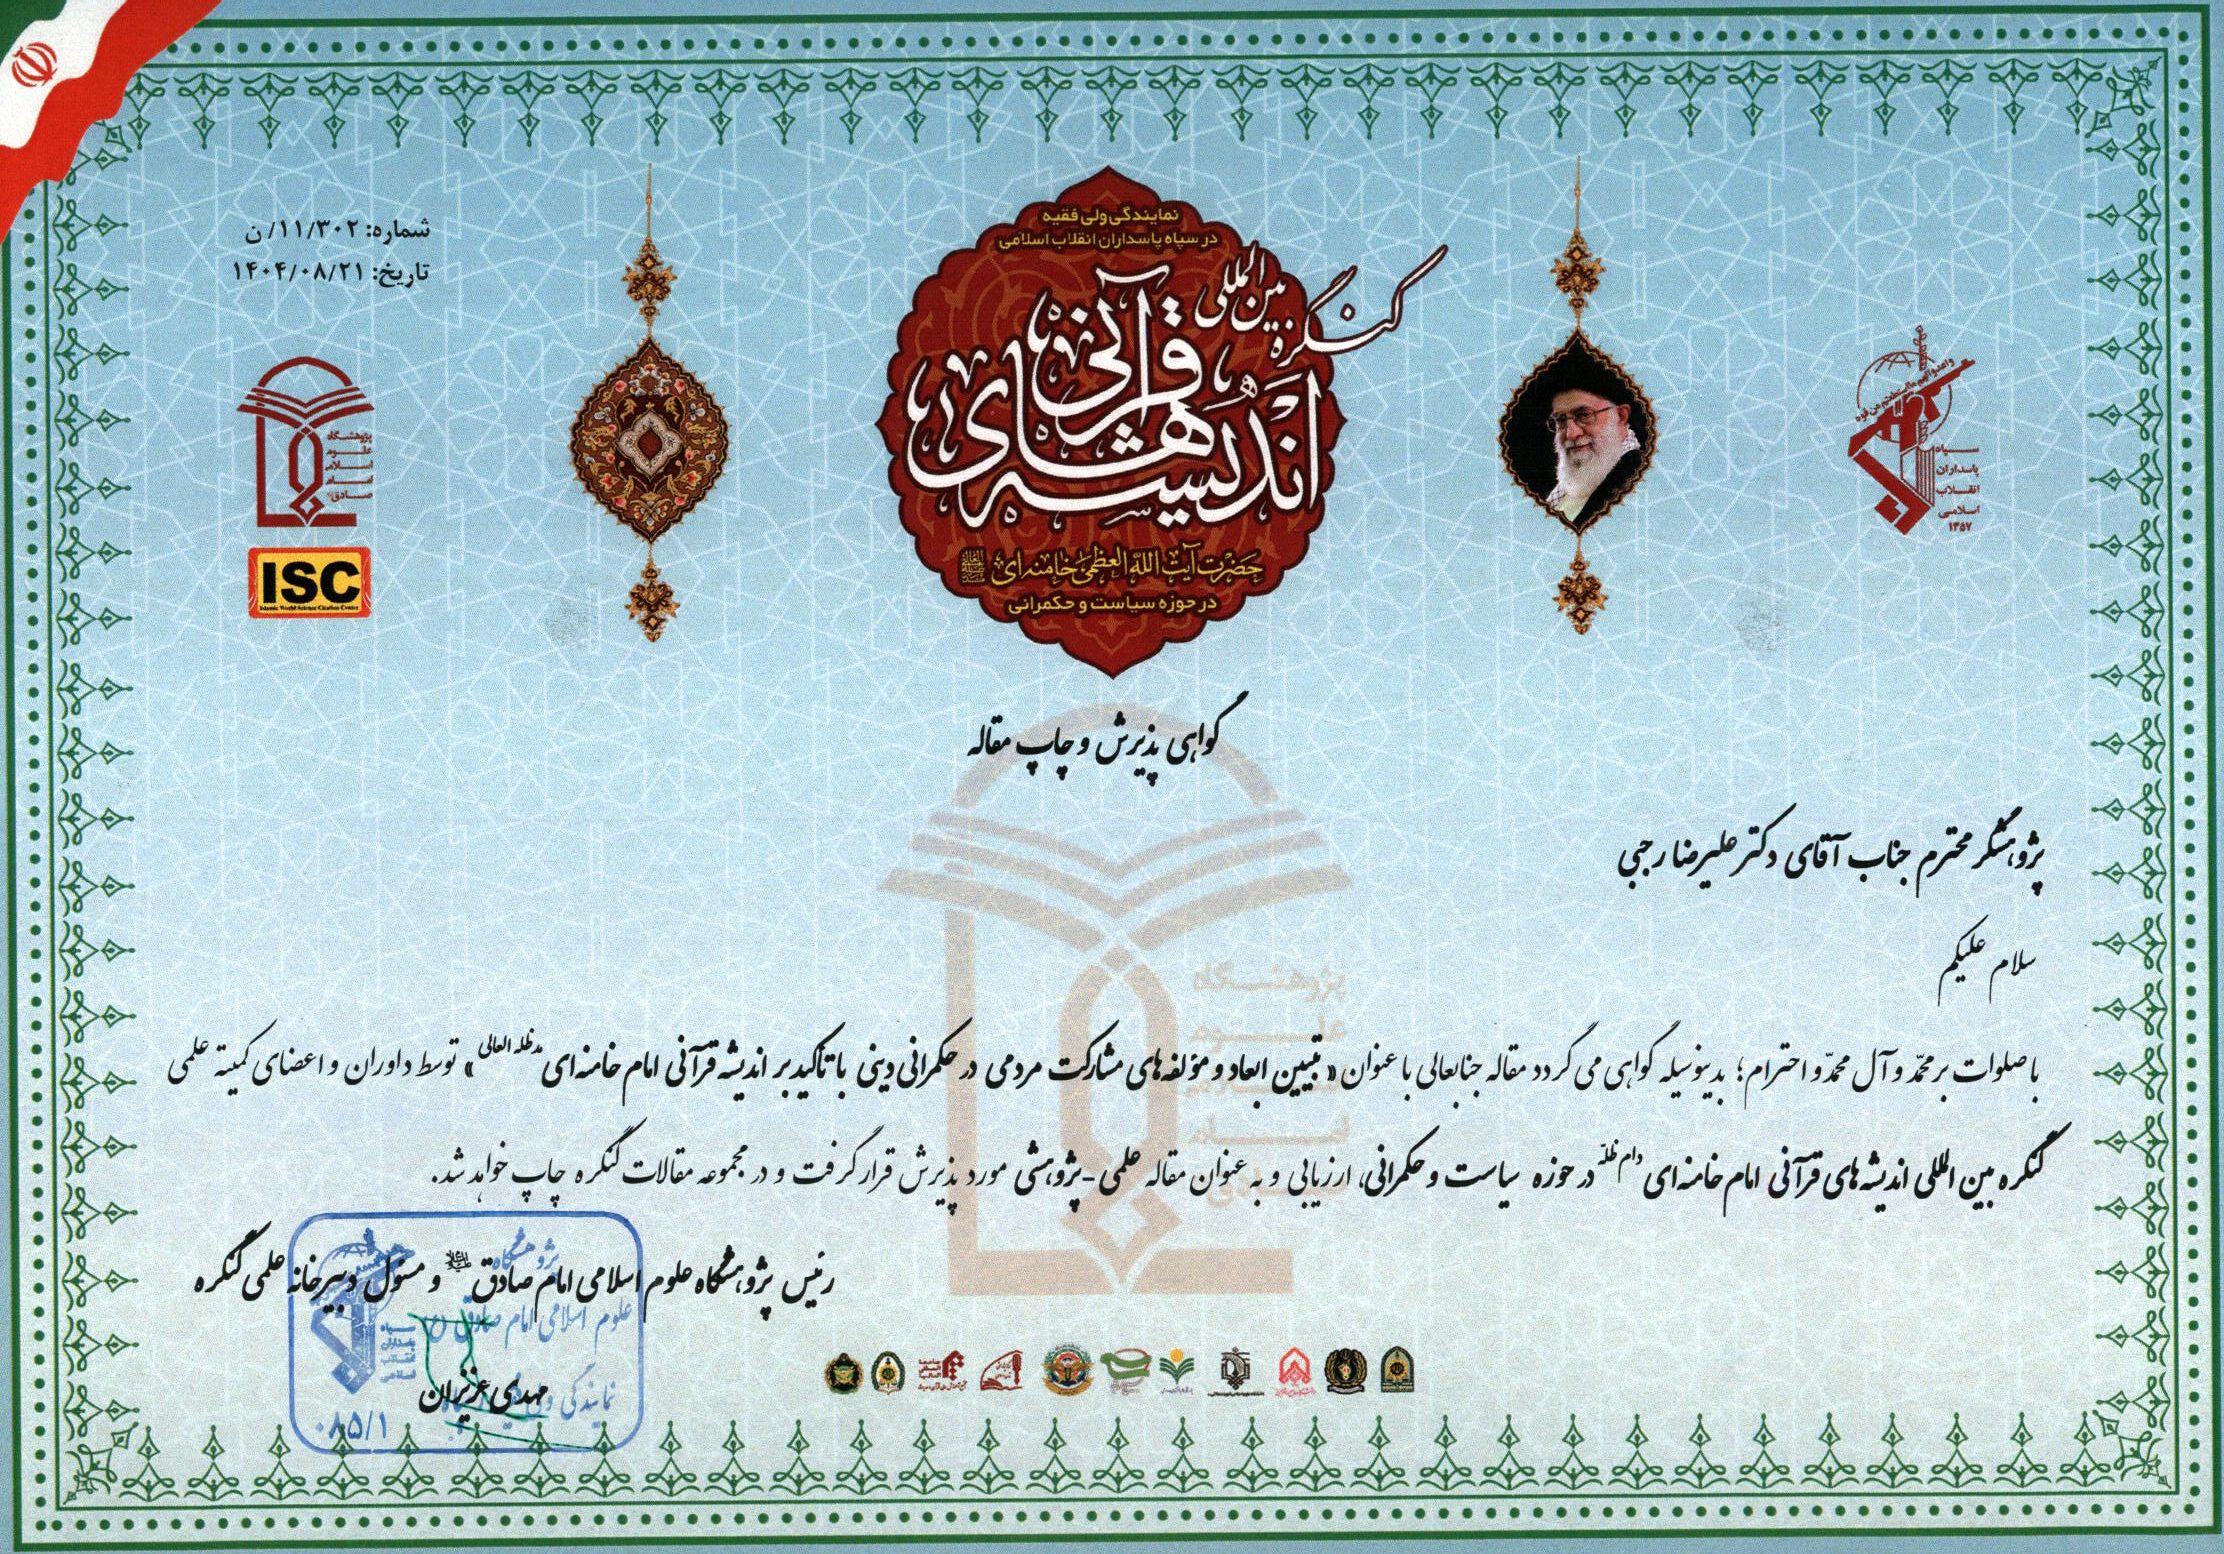 شماره: ۱۱/۳۰۲/ن
تاریخ: ۱۴۰۴/۰۸/۲۱
نمایندگی ولی فقیه
در سپاه پاسداران انقلاب اسلامی
کنگره بین المللی
اندیشه های قرآنی
حضرت آیت الله العظمی خامنه ای
در حوزه سیاست و حکمرانی
سپاه
پاسداران
انقلاب
اسلامی
۱۳۵۷
پژوهشگاه
علوم
اسلامی
امام
صادق
ISC
Islamic World Science Citation Center
گواهی پذیرش و چاپ مقاله
پژوهشگر محترم جناب آقای دکتر علیرضا رجبی
سلام علیکم
با صلوات بر محمّد و آل محمّد و احترام؛ بدینوسیله گواهی می گردد مقاله جنابعالی با عنوان « تبیین ابعاد و مؤلفه های مشارکت مردمی در حکمرانی دینی با تأکید بر اندیشه قرآنی امام خامنه ای مدظله العالی » توسط داوران و اعضای کمیته علمی
کنگره بین المللی اندیشه های قرآنی امام خامنه ای دام ظلّه در حوزه سیاست و حکمرانی، ارزیابی و به عنوان مقاله علمی - پژوهشی مورد پذیرش قرار گرفت و در مجموعه مقالات کنگره چاپ خواهد شد.
رئیس پژوهشگاه علوم اسلامی امام صادق و مسئول دبیرخانه علمی کنگره
مهدی عزیزان
پژوهشگاه
علوم اسلامی امام صادق
نمایندگی
۰۸۵/۱